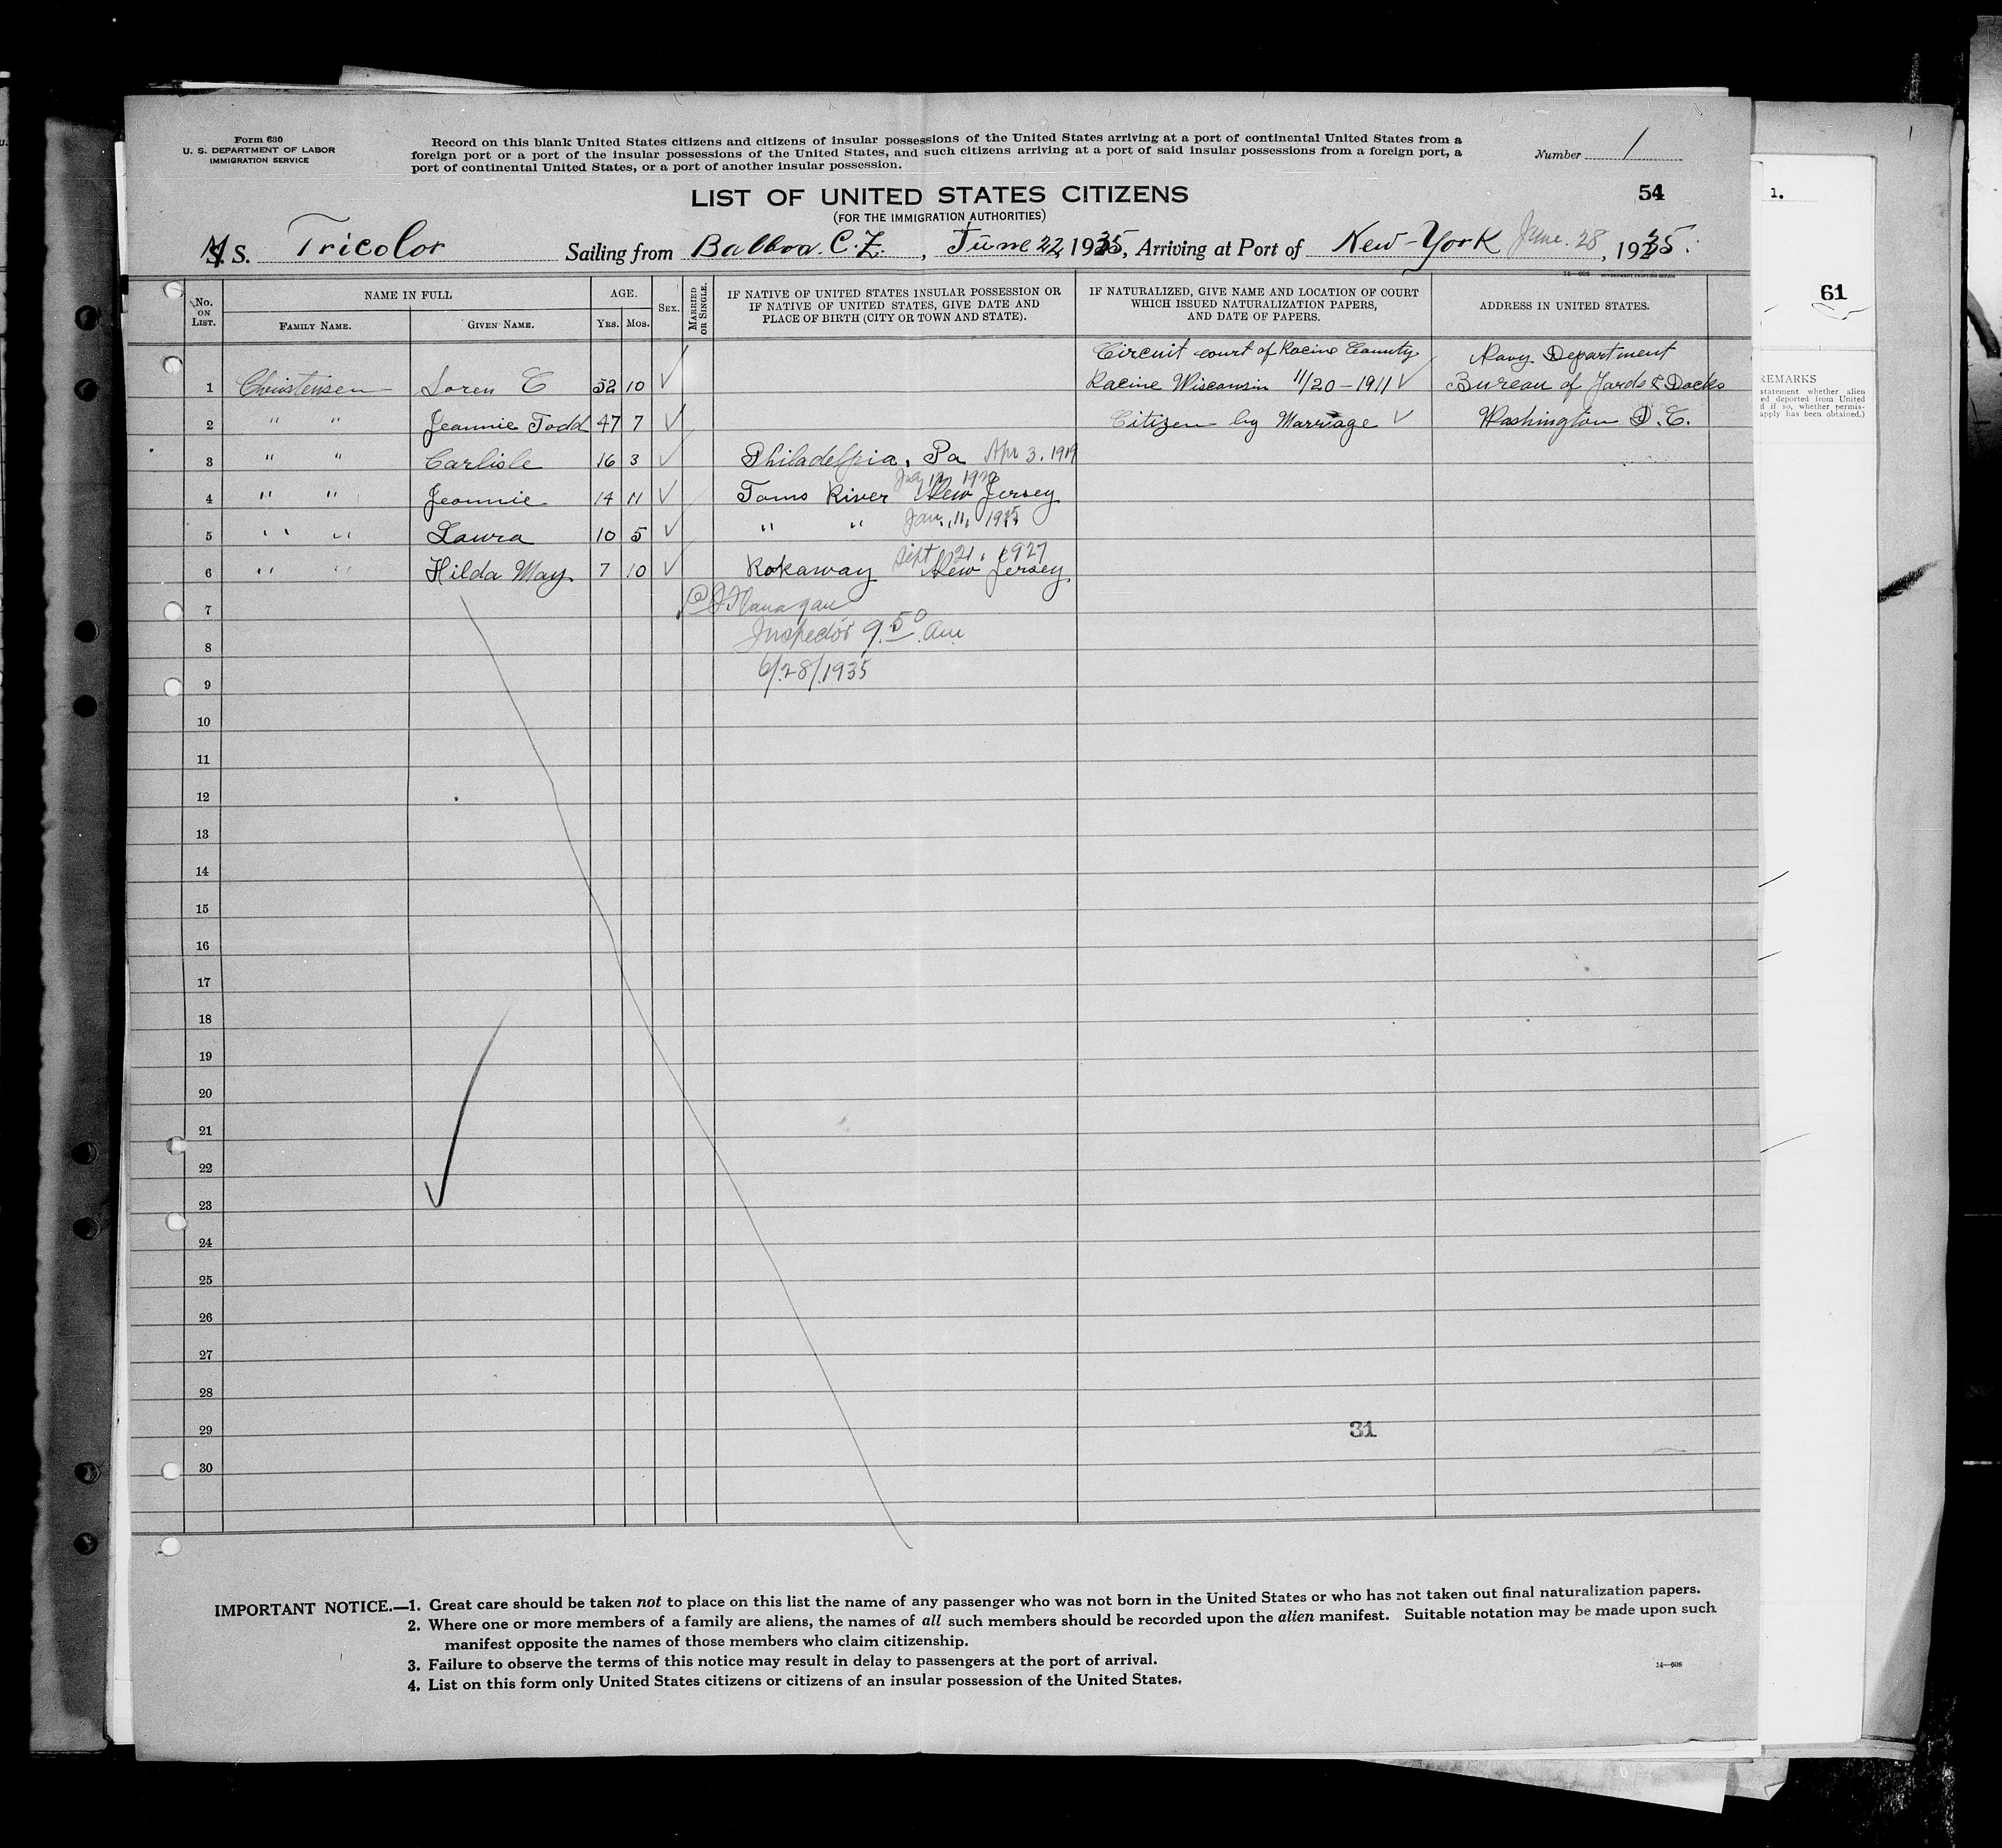 Form 630
U. S. DEPARTMENT OF LABOR
IMMIGRATION SERVICE
Record on this blank United States citizens and citizens of insular possessions of the United States arriving at a port of continental United States from a
foreign port or a port of the insular possessions of the United States, and such citizens arriving at a port of said insular possessions from a foreign port, a
port of continental United States, or a port of another insular possession.
Number 1
LIST OF UNITED STATES CITIZENS
54
(FOR THE IMMIGRATION AUTHORITIES)
M. S. Tricolor Sailing from Balboa. C. Z. , June 22, 1935, Arriving at Port of New-York June. 28, 1935.
No. ON LIST.
NAME IN FULL
FAMILY NAME.
GIVEN NAME.
AGE.
YRS. MOS.
SEX.
MARRIED OR SINGLE.
IF NATIVE OF UNITED STATES INSULAR POSSESSION OR
IF NATIVE OF UNITED STATES, GIVE DATE AND
PLACE OF BIRTH (CITY OR TOWN AND STATE).
IF NATURALIZED, GIVE NAME AND LOCATION OF COURT
WHICH ISSUED NATURALIZATION PAPERS,
AND DATE OF PAPERS.
ADDRESS IN UNITED STATES.
Circuit court of Racine County Navy Department
1 Christensen Loren C 52 10 Racine Wisconsin 11/20-1911 Bureau of Yards & Docks
2 " " Jeannie Todd 47 7 Citizen by Marriage Washington D. C.
3 " " Carlisle 16 3 Philadelpia, Pa Apr 3. 1919
4 " " Jeannie 14 11 Toms River New Jersey July 1920
5 " " Laura 10 5 " " Jan. 11, 1925
6 " " Hilda May 7 10 Rokaway New Jersey Sept 21, 1927
7 Flanagan
8 Inspector 9.50 Am
6/28/1935
9
10
11
12
13
14
15
16
17
18
19
20
21
22
23
24
25
26
27
28
29
31
30
IMPORTANT NOTICE.—1. Great care should be taken not to place on this list the name of any passenger who was not born in the United States or who has not taken out final naturalization papers.
2. Where one or more members of a family are aliens, the names of all such members should be recorded upon the alien manifest. Suitable notation may be made upon such
manifest opposite the names of those members who claim citizenship.
3. Failure to observe the terms of this notice may result in delay to passengers at the port of arrival.
4. List on this form only United States citizens or citizens of an insular possession of the United States.
14—608
1.
61
REMARKS
statement whether alien
ed deported from United
d if so, whether permis-
apply has been obtained.)